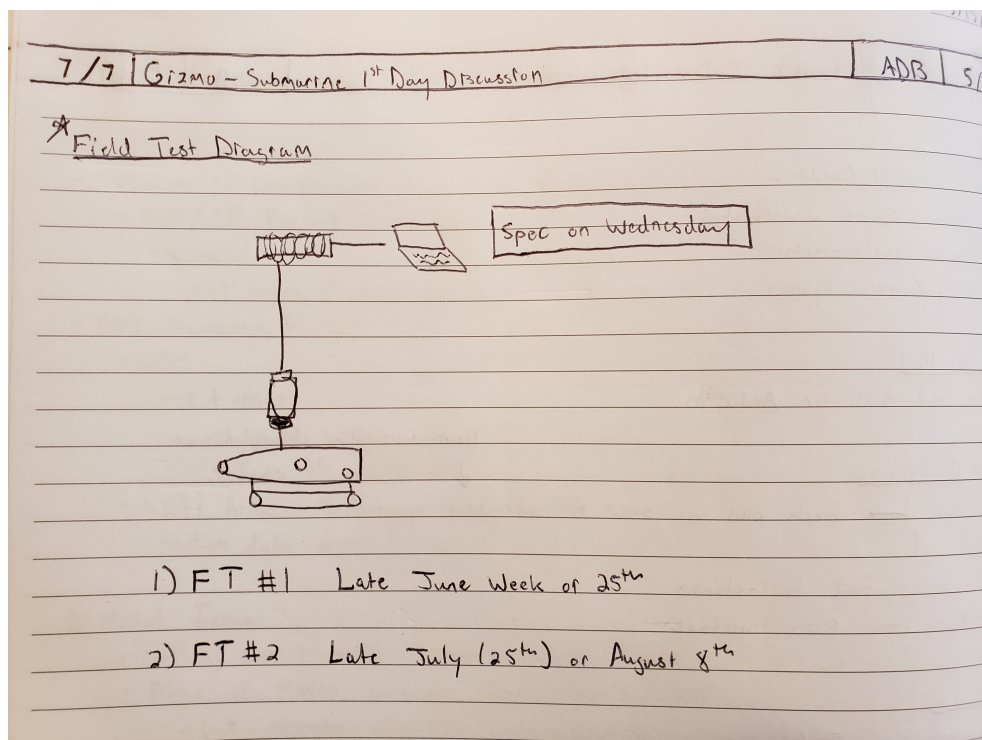 7/7 Gizmo - Submarine 1st Day Discussion ADB 5/
Field Test Diagram
Spec on Wednesday
1) FT #1 Late June Week of 25th
2) FT #2 Late July (25th) or August 8th